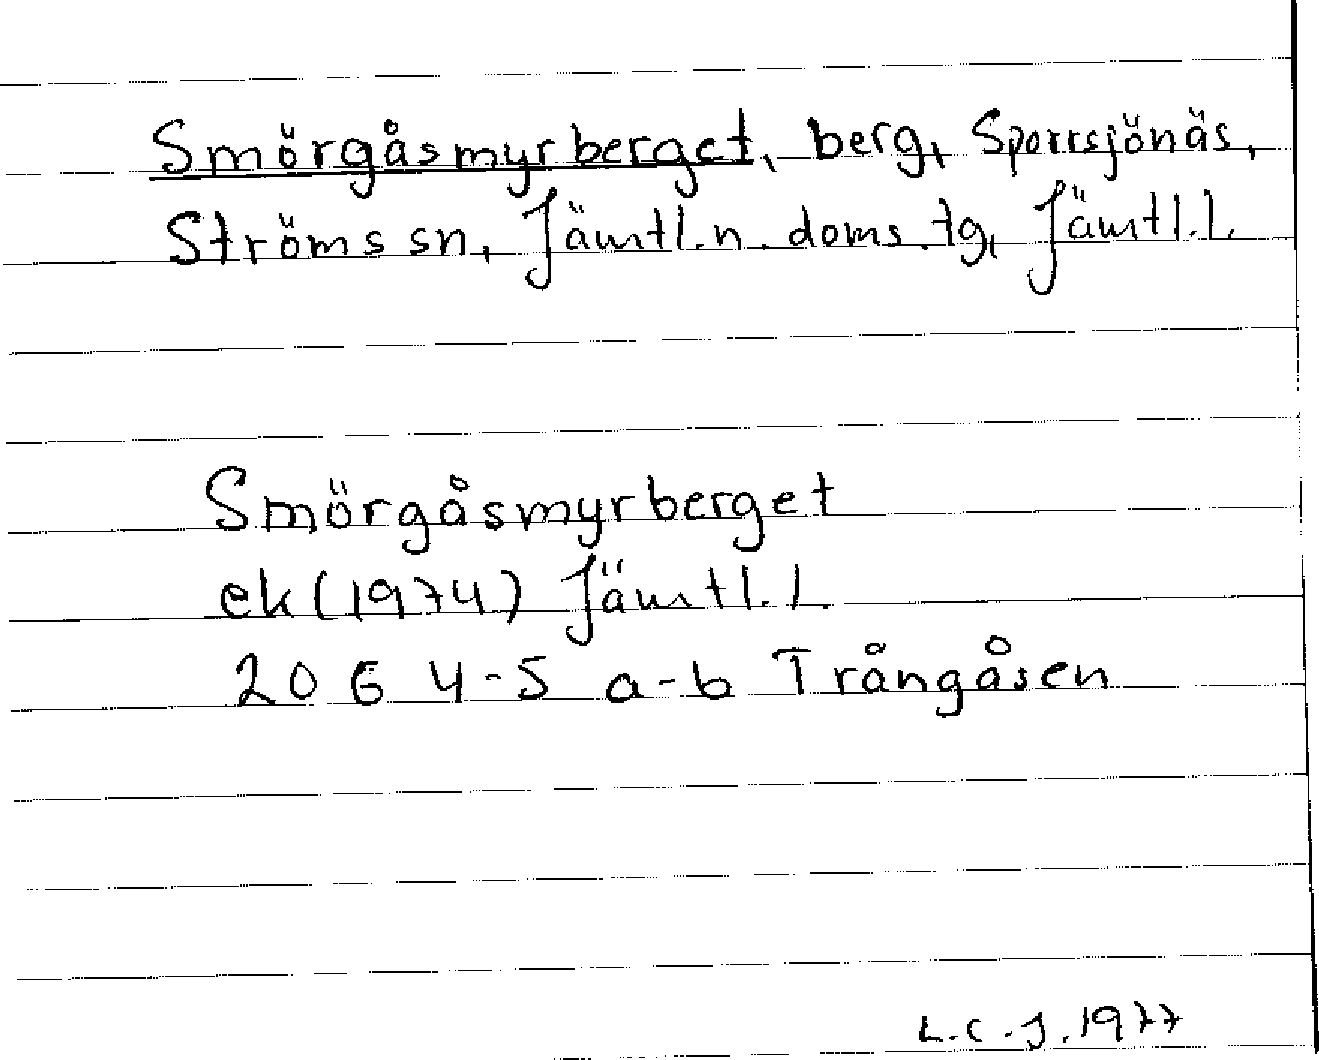 Smörgåsmyrberget, berg, Sporrsjönäs,
Ströms sn, Jämtl.n. doms.tg, Jämtl.l.
Smörgåsmyrberget
ek (1974) Jämtl.l.
20 G 4-5 a-b Trångåsen
L.C.J. 1977